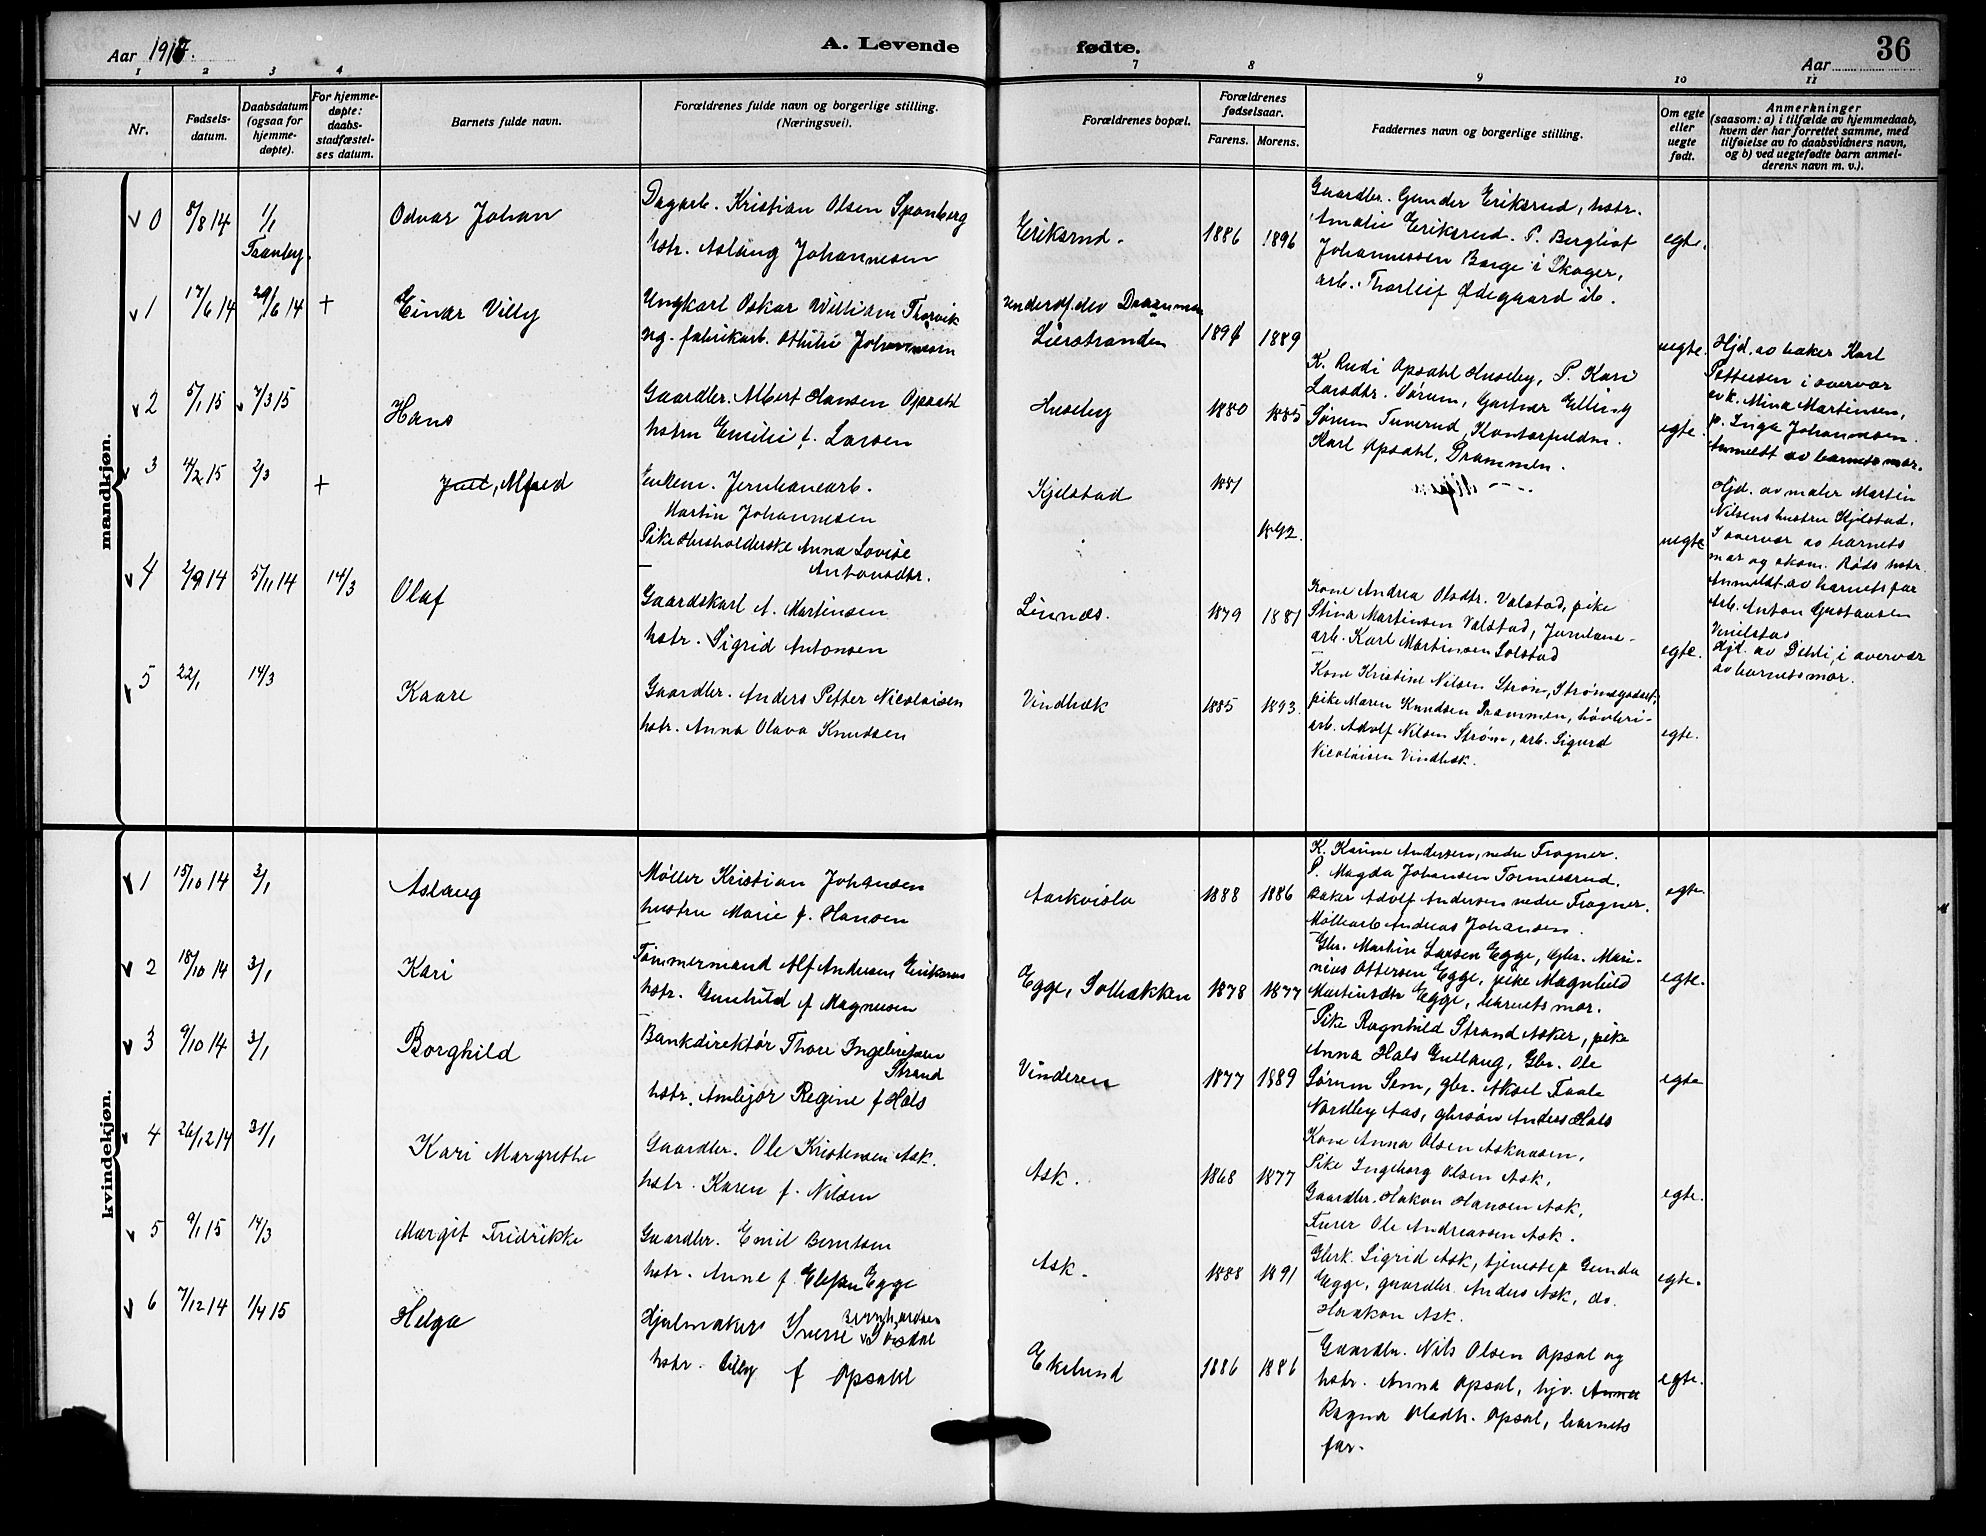 Aar 1915.
A. Levende
fødte.
Aar
36
1 2 3 4
7 8 9 10 11
Nr.
Fødsels-
datum.
Daabsdatum
(ogsaa for
hjemme-
døpte).
For hjemme-
døpte:
daabs-
stadfæstel-
ses datum.
Barnets fulde navn.
Forældrenes fulde navn og borgerlige stilling.
(Næringsvei).
Forældrenes bopæl.
Forældrenes
fødselsaar.
Farens. Morens.
Faddernes navn og borgerlige stilling.
Om egte
eller
uegte
født.
Anmerkninger
(saasom: a) i tilfælde av hjemmedaab,
hvem der har forrettet samme, med
tilføielse av to daabsvidners navn,
og b) ved uegtefødte barn anmel-
derens navn m. v.).
mandkjøn.
0 5/8 14 1/1
Tranby.
Odvar Johan
Dagarb. Kristian Olsen Sponberg
hstr. Aslaug Johannesen
Eriksrud.
1886 1896
Gaardbr. Gunder Eriksrud, hstr.
Amalie Eriksrud. P. Bergliot
Johannessen Barge i Skoger,
arb. Thorleif Ødegaard ib.
egte.
1 17/6 14 29/6 14 +
Einar Villy
Ungkarl Oskar William Thorvik
ug. fabrikarb. Othilie Johannesen
Lierstranden
1894 1889
uegte.
Hjd. av baker Karl
Pettersen i overvær
av k. Mina Martinsen,
p. Inga Johannesen.
Anmeldt av barnets mor.
2 5/1 15 7/3 15
Hans
Gaardbr. Albert Hansen Opsahl
hstru Emilie f. Larsen
Huseby
1880 1885
K. Rudi Opsahl Huseby, P. Kari
Larsdtr. Sørum, Gartner Elling
Sørum Tuverud, Kontorfuldm.
Karl Opsahl, Drammen.
egte.
3 4/2 15 2/3 +
Juul, Alfred
Enkem. Jernbanearb.
Martin Johannesen
Pike Husholderske Anna Lovise
Antonsdtr.
Kjelstad
1881
1892.
uegte
Hjd. av maler Martin
Nilsens hustru Kjelstad.
I overvær av barnets
mor og skom. Røds hstr.
Anmeldt av barnets far
Arb. Anton Gustavsen
4 2/9 14 5/11 14 14/3
Olaf
Gaardskarl A. Martinsen
hstr. Sigrid Antonsen
Linnæs.
1879 1881
Kone Andrea Olsdtr. Valstad, pike
Stina Martinsen Valstad, Jernbane-
arb. Karl Martinsen Solstad
egte.
Hjd. av Dehli, i overvær
av barnets mor.
5 22/1 14/3
Kaare
Gaardbr. Anders Petter Nicolaisen
hstr. Anna Olava Knudsen
Vindbæk
1885 1893.
Kone Kristine Nilsen Strøm, Strømsgodset,
pike Maren Knudsen Drammen, høvleri-
arb. Adolf Nilsen Strøm, arb. Sigurd
Nicolaisen Vindbæk.
egte.
kvindekjøn.
1 15/10 14 3/1
Aslaug
Møller Kristian Johansen
hustru Marie f. Hansen
Aarkvisla
1888 1886
K. Karine Andersen, nedre Frogner.
P. Magda Johansen Tormesrud,
Baker Adolf Andersen nedre Frogner.
Møllearb Andreas Johansen.
egte.
2 18/10 14 3/1
Kari
Tømmermand Alf Andersen Eriksen
hstr. Gunhild f Magnusen
Egge, Solbakken
1878 1877
Gbr. Martin Larsen Egge, gbr. Mari-
nius Ottersen Egge, pike Magnhild
Martinsdtr Egge, barnets mor.
egte.
3 9/10 14 3/1
Borghild
Bankdirektør Thore Ingebretsen
Strand
hstr. Ambjør Regine f Hals
Vinderen
1877 1889
Pike Ragnhild Strand Asker, pike
Anna Hals Gullaug, Gbr. Ole
Sørum Sem, gbr. Aksel Taale
Nordby Aas, gbrsøn Anders Hals
egte
4 26/12 14 31/1
Kari Margrethe
Gaardbr. Ole Kristensen Ask.
hstr. Karen f. Nilsen
Ask.
1868 1877
Kone Anna Olsen Asknæsen,
Pike Ingeborg Olsen Ask,
Gaardbr. Hakon Hansen Ask,
Furer Ole Andreassen Ask.
egte.
5 9/1 15 14/3
Margit Fridrikke
Gaardbr. Emil Berntsen
hstr. Anne f. Elefsen Egge
Ask.
1888 1891
Gbrk. Sigrid Ask, tjenestep Gunda
Egge, gaardbr. Anders Ask, do.
Haakon Ask.
egte.
6 7/12 14 1/4 15
Helga
Hjulmaker Sverre
hstr. f Opsahl
Ekelund
1886 1886
Gaardbr. Nils Olsen Opsal og
hstr. Anna Opsal, hjv. Anna
Ragna Olsdtr. Opsal, barnets
far.
egte.